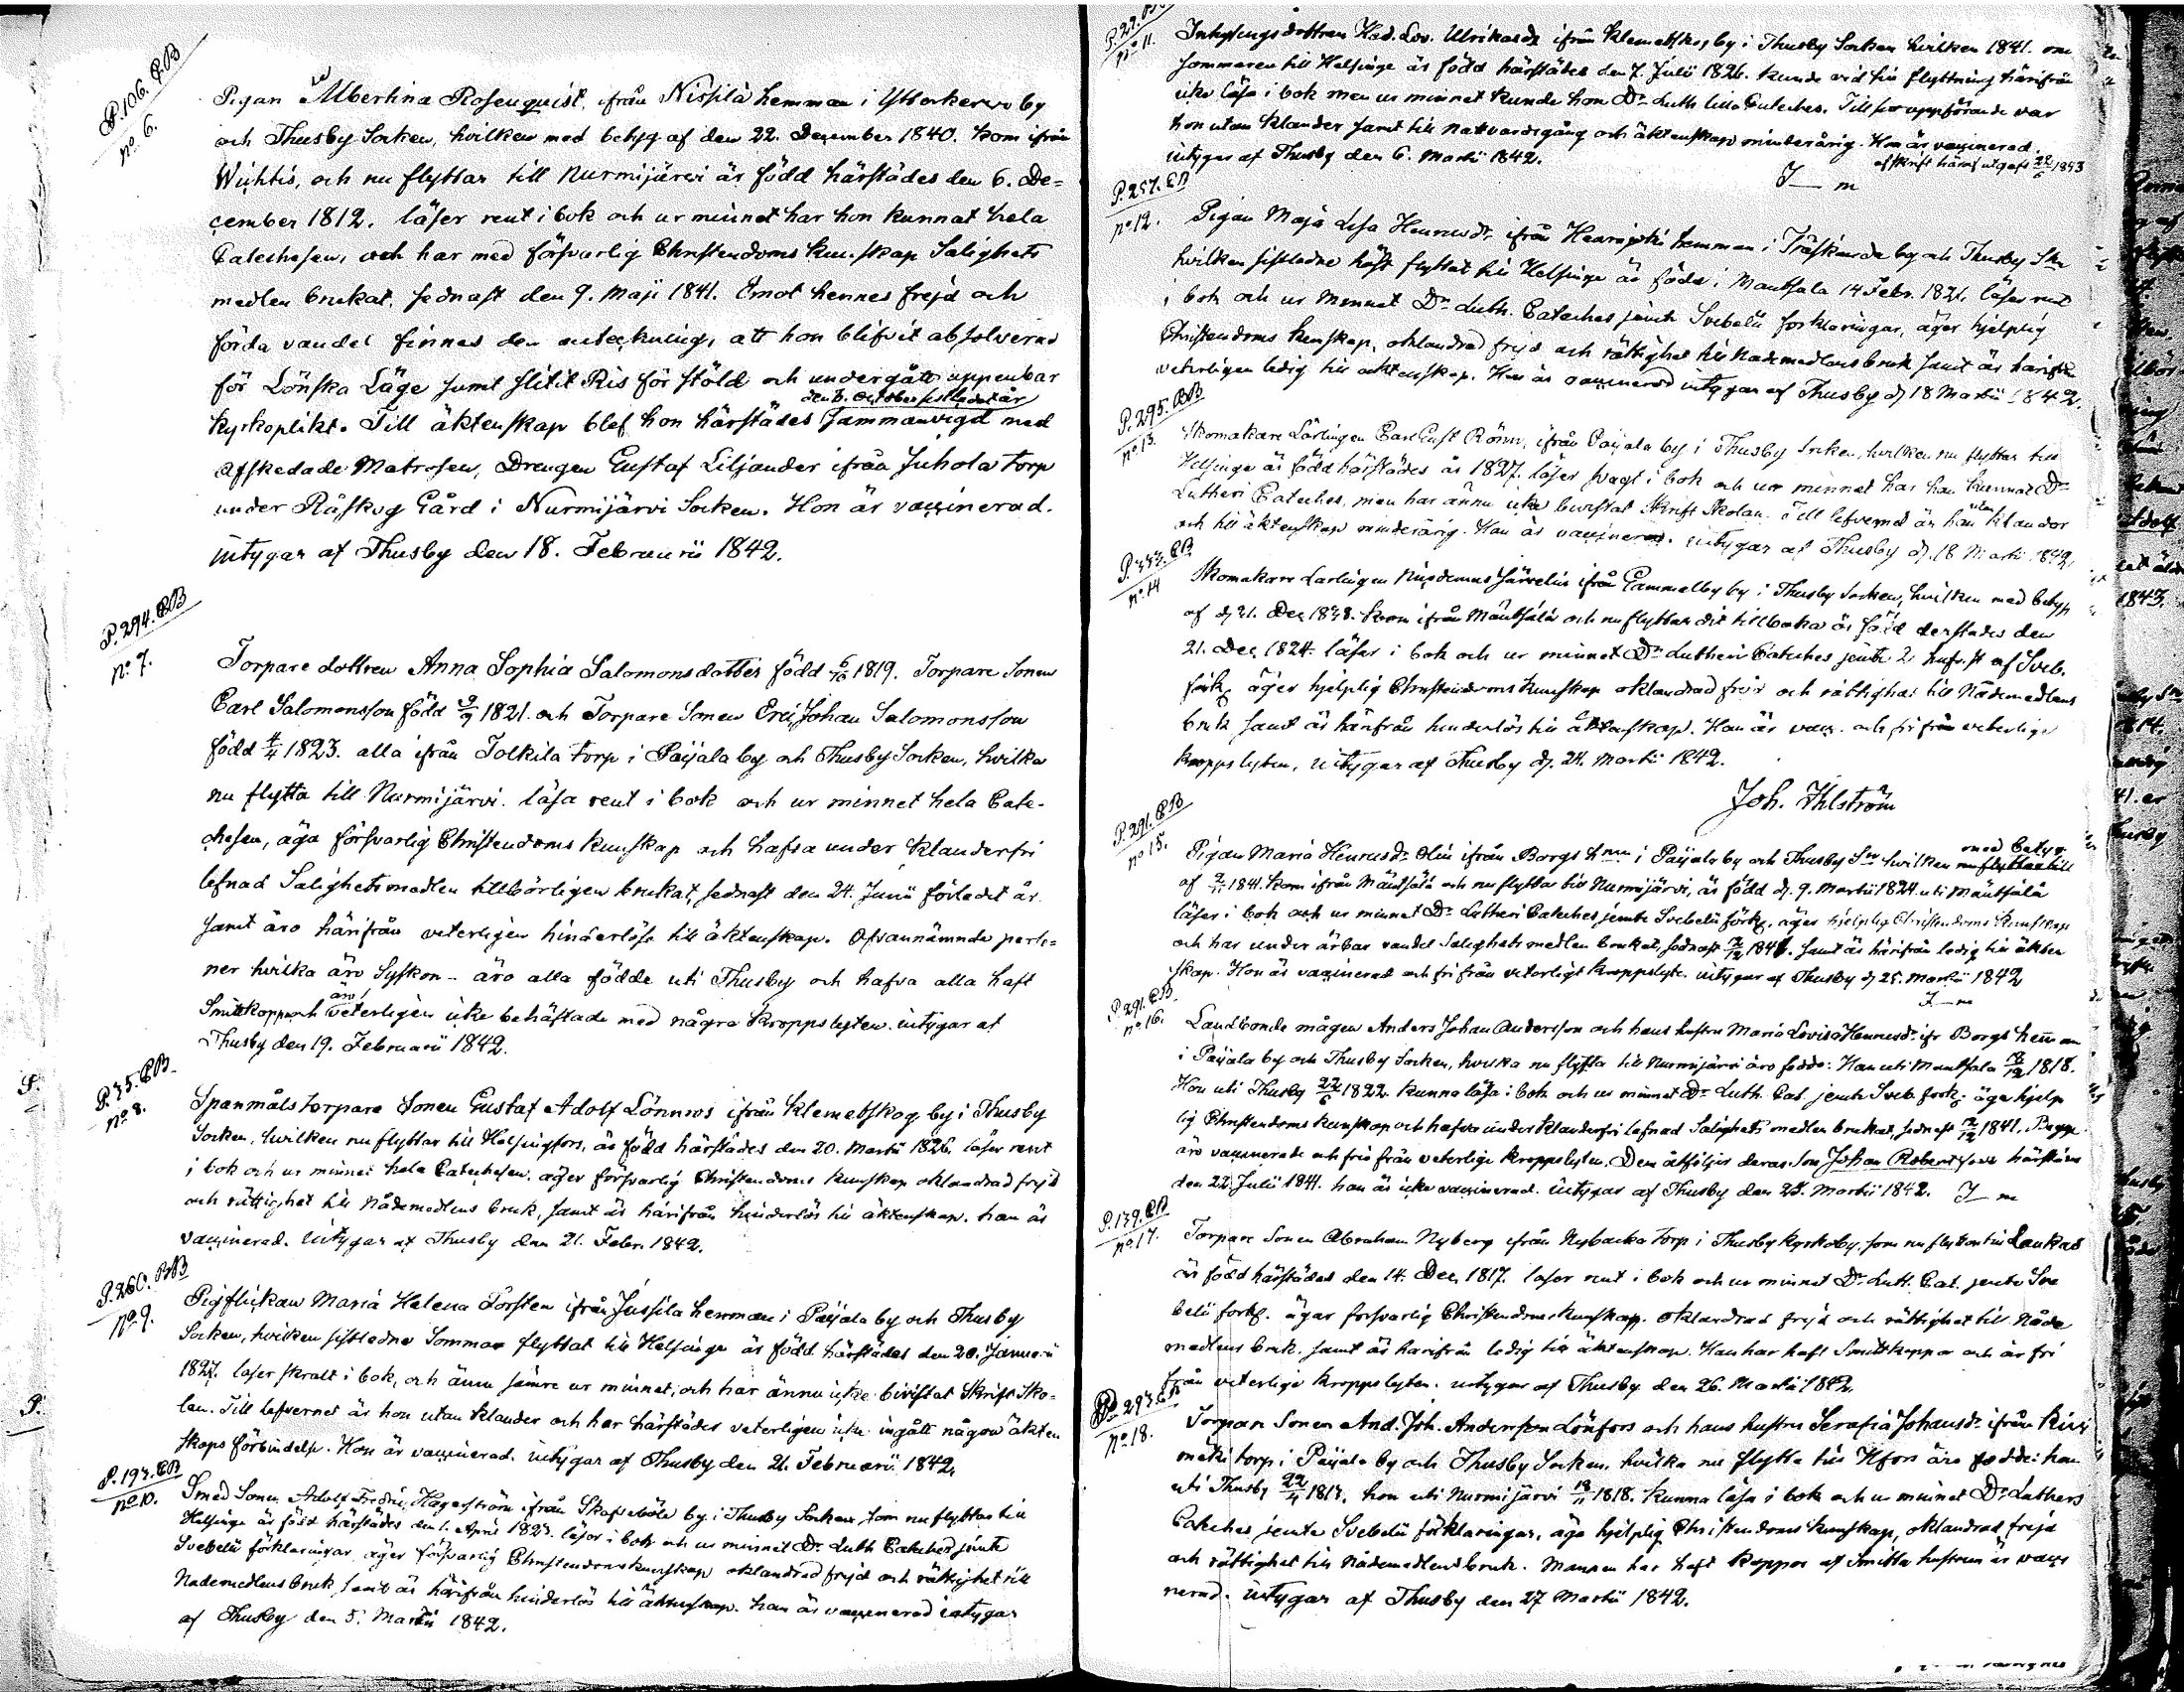 P. 106. CB
no. 6.
Pigan Albertina Rosenquist, ifrån Nissilä hemman i Ytterkervo by
och Thusby Socken, hvilken med betyg af den 22. December 1840. kom ifrån
Wichtis, och nu flyttar till Nurmijärvi är född härstädes den 6. De=
cember 1812. läser rent i bok och ur minnet har hon kunnat hela
Catechesen, och har med försvarlig Christendoms kunskap Salighets
medlen brukat, sednast den 9. Maji 1841. Emot hennes frejd och
förda vandel finnes den anteckning, att hon blifvit absolverad
för Lönska Läge samt slitit Ris för stöld och undergått uppenbar
den 3. October sistledet år
kyrkoplikt. Till äktenskap blef hon härstädes sammanvigd med
afskedade Matrosen, Drengen Gustaf Liljander ifrån Juhola torp
under Råskog Gård i Nurmijärvi Socken. Hon är vaccinerad.
intygar af Thusby den 18. Februarii 1842.
P. 294. CB
no. 7.
Torpare dottren Anna Sophia Salomonsdotter född 6/10 1819. Torpare Sonen
Carl Salomonsson född 9/9 1821. och Torpare Sonen Eric Johan Salomonsson
född 4/4 1823. alla ifrån Tolkila torp i Paijala by och Thusby Socken, hvilka
nu flytta till Nurmijärvi. läsa rent i bok och ur minnet hela Cate-
chesen, äga försvarlig Christendoms kunskap och hafva under klanderfri
lefnad Salighetsmedlen tillbörligen brukat, sednast den 24. Junii förledet år
samt äro härifrån veterligen hinderlösa till äktenskap. Ofvannämnde perso=
ner hvilka äro Syskon - äro alla födde uti Thusby och hafva alla haft
Smittkoppor och äro veterligen icke behäftade med några kroppslyten. intygar af
Thusby den 19. Februarii 1842.
P. 35. CB
no. 8.
Spanmåls torpare Sonen Gustaf Adolf Lönnros ifrån Klemetskog by i Thusby
Socken, hvilken nu flyttar till Helsingfors, är född härstädes den 20. Martii 1826. läser rent
i bok och ur minnet hela Catechesen. äger försvarlig Christendoms kunskap oklandrad frejd
och rättighet till Nådemedlens bruk, samt är härifrån hinderlös till äktenskap. han är
vaccinerad. intygar af Thusby den 21. Febr. 1842.
P. 260. BB
No. 9.
Pigflickan Maria Helena Torsten ifrån Jussila hemman i Paijala by och Thusby
Socken, hvilken sistledne Sommar flyttat till Helsinge är född härstädes den 20. Januarii
1827. läser skralt i bok, och ännu sämre ur minnet, och har ännu icke bivistat Skrift Sko=
lan. Till lefvernet är hon utan klander och har härstädes veterligen icke ingått någon äkten
skaps förbindelse. Hon är vaccinerad. intygar af Thusby den 21. Februarii 1842.
P. 193. CB
no. 10.
Smed Sonen Adolf Fredric Hagerström ifrån Skafveböle by i Thusby Socken som nu flyttar till
Helsinge är född härstädes den 1. April 1823. läser i bok och ur minnet Dr. Luth Cateches jemte
Svebelii förklaringar äger försvarlig Christendomskunskap oklandrad frejd och rättighet till
Nådemedlens bruk, samt är härifrån hinderlös till äktenskap. han är vaccinerad intygar
af Thusby den 5. Martii 1842.
no. 11.
Inhysings dottren Hed. Lov. Ulriksdr ifrån Klemetskog by i Thusby Socken hvilken 1841. om
sommaren till Helsinge är född härstädes den 7. Julii 1826. kunde vid sin flyttning härifrån
icke läsa i bok men ur minnet kunde hon Dr. Luth lilla Cateches. Till sit uppförande var
hon utan klander samt till nattvardsgång och äktenskap minderårig. Hon är vaccinerad.
intygar af Thusby den 6. Martii 1842.
afskrift häraf utgaft 22/6 1853
J—m
P. 257. CB
no. 12.
Pigan Maja Lisa Henricsdr. ifrån hemman i Träskända by och Thusby Skn
hvilken sistledne höst flyttat till Helsinge är född i Mäntsälä 14 Febr. 1821. läser rent
i bok och ur minnet Dr. Luth. Cateches jemte Svebelii förklaringar, äger hjelplig
Christendoms kunskap, oklandrad frejd och rättighet till Nådemedlens bruk samt är härifrån
veterligen ledig till äktenskap. Hon är vaccinerad intygar af Thusby d. 18 Martii 1842.
P. 295. BB
no. 13.
Skomakare Lärlingen Carl Gust Rönn, ifrån Paijala by i Thusby Socken, hvilken nu flyttar till
Helsinge är född härstädes år 1827. läser svagt i bok och ur minnet har han kunnat Dr
Lutheri Cateches, men har ännu icke bevistat Skrift Skolan. Till lefvernet är han utan klander
och till äktenskap minderårig. Han är vaccinerad. intygar af Thusby d. 18 Martii 1842.
no. 14
Skomakare Lärlingen Nicodemus Järvelin ifrån Gammelby by i Thusby Socken, hvilken med betyg
af d. 21. Dec 1838. kom ifrån Mäntsälä och nu flyttar dit tillbaka är född derstädes den
21. Dec. 1824. läser i bok och ur minnet Dr. Lutheri Cateches jemte 2 hufvst af Sveb.
förk, äger hjelplig Christendoms kunskap oklandrad frejd och rättighet till Nådemedlens
bruk samt är härifrån hinderlös till äktenskap. Han är vacc. och fri från veterliga
kroppslyten, intygar af Thusby d. 24. Martii 1842.
Joh. Ahlström
P. 291. CB
no. 15.
Pigan Maria Henricsdr Olin ifrån Borgs hmn i Paijala by och Thusby Sn hvilken nu flyttar till
med betyg
af 2/11 1841. kom ifrån Mäntsälä och nu flyttar till Nurmijärvi, är född d. 9. Martii 1824 uti Mäntsälä
läser i bok och ur minnet Dr. Lutheri Cateches jemte Svebelii förkl, äger hjelplig Christendoms kunskap
och har under ärbar vandel Salighetsmedlen brukat, sednast 1841. samt är härifrån ledig till äkten
skap. Hon är vaccinerad och fri från veterligt kroppslyte. intygar af Thusby d 25. Martii 1842
J—m
P. 291. CB.
no. 16.
Landbonde mågen Anders Johan Andersson och hans hustru Maria Lovisa Henricsdr. ifr Borgs hemman
i Paijala by och Thusby Socken, hvilka nu flytta till Nurmijärvi äro födde: Han uti Mäntsälä 1818.
Hon uti Thusby 22/6 1822. kunna läsa i bok och ur minnet Dr. Luth. Cat. jemte Sveb. förk. äga hjelp
lig Christendoms kunskap och hafva under klanderfri lefnad Salighets medlen brukat, sednast 1841. Begge
äro vaccinerade och fria från veterliga kroppslyten. Dem åtföljer deras Son Johan Robert född härstädes
den 22 Julii 1841. han är icke vaccinerad. intygar af Thusby den 25. Martii 1842. J—m
P. 139. CB
no. 17.
Torpare Sonen Abraham Nyberg ifrån Nybacka torp i Thusby Kyrkoby, som nu flyttar till Laukas
är född härstädes den 14. Dec. 1817. läser rent i bok och ur minnet Dr. Luth. Cat. jemte Sve
belii förkl. äger försvarlig Christendomskunskap. oklandrad frejd och rättighet till Nåde
medlens bruk samt är härifrån ledig till äktenskap. Han har haft Smittkoppor och är fri
från veterliga kroppslyten. intygar af Thusby den 26. Martii 1842.
P. 293. CB
no. 18.
Torpare Sonen And. Joh. Andersson Lönfors och hans hustru Serafia Johansdr. ifrån Kivi
mäki torp i Paijala by och Thusby Socken, hvilka nu flytta till Hfors äro födde: han
uti Thusby 22/4 1817. hon uti Nurmijärvi 18/11 1818. kunna läsa i bok och ur minnet Dr. Luthers
Cateches, jemte Svebelii förklaringar, äga hjelplig Christendoms kunskap, oklandrad frejd
och rättighet till Nådemedlens bruk. Mannen har haft koppor af Smitta hustrun är vacci
nerad. intygar af Thusby den 27 Martii 1842.